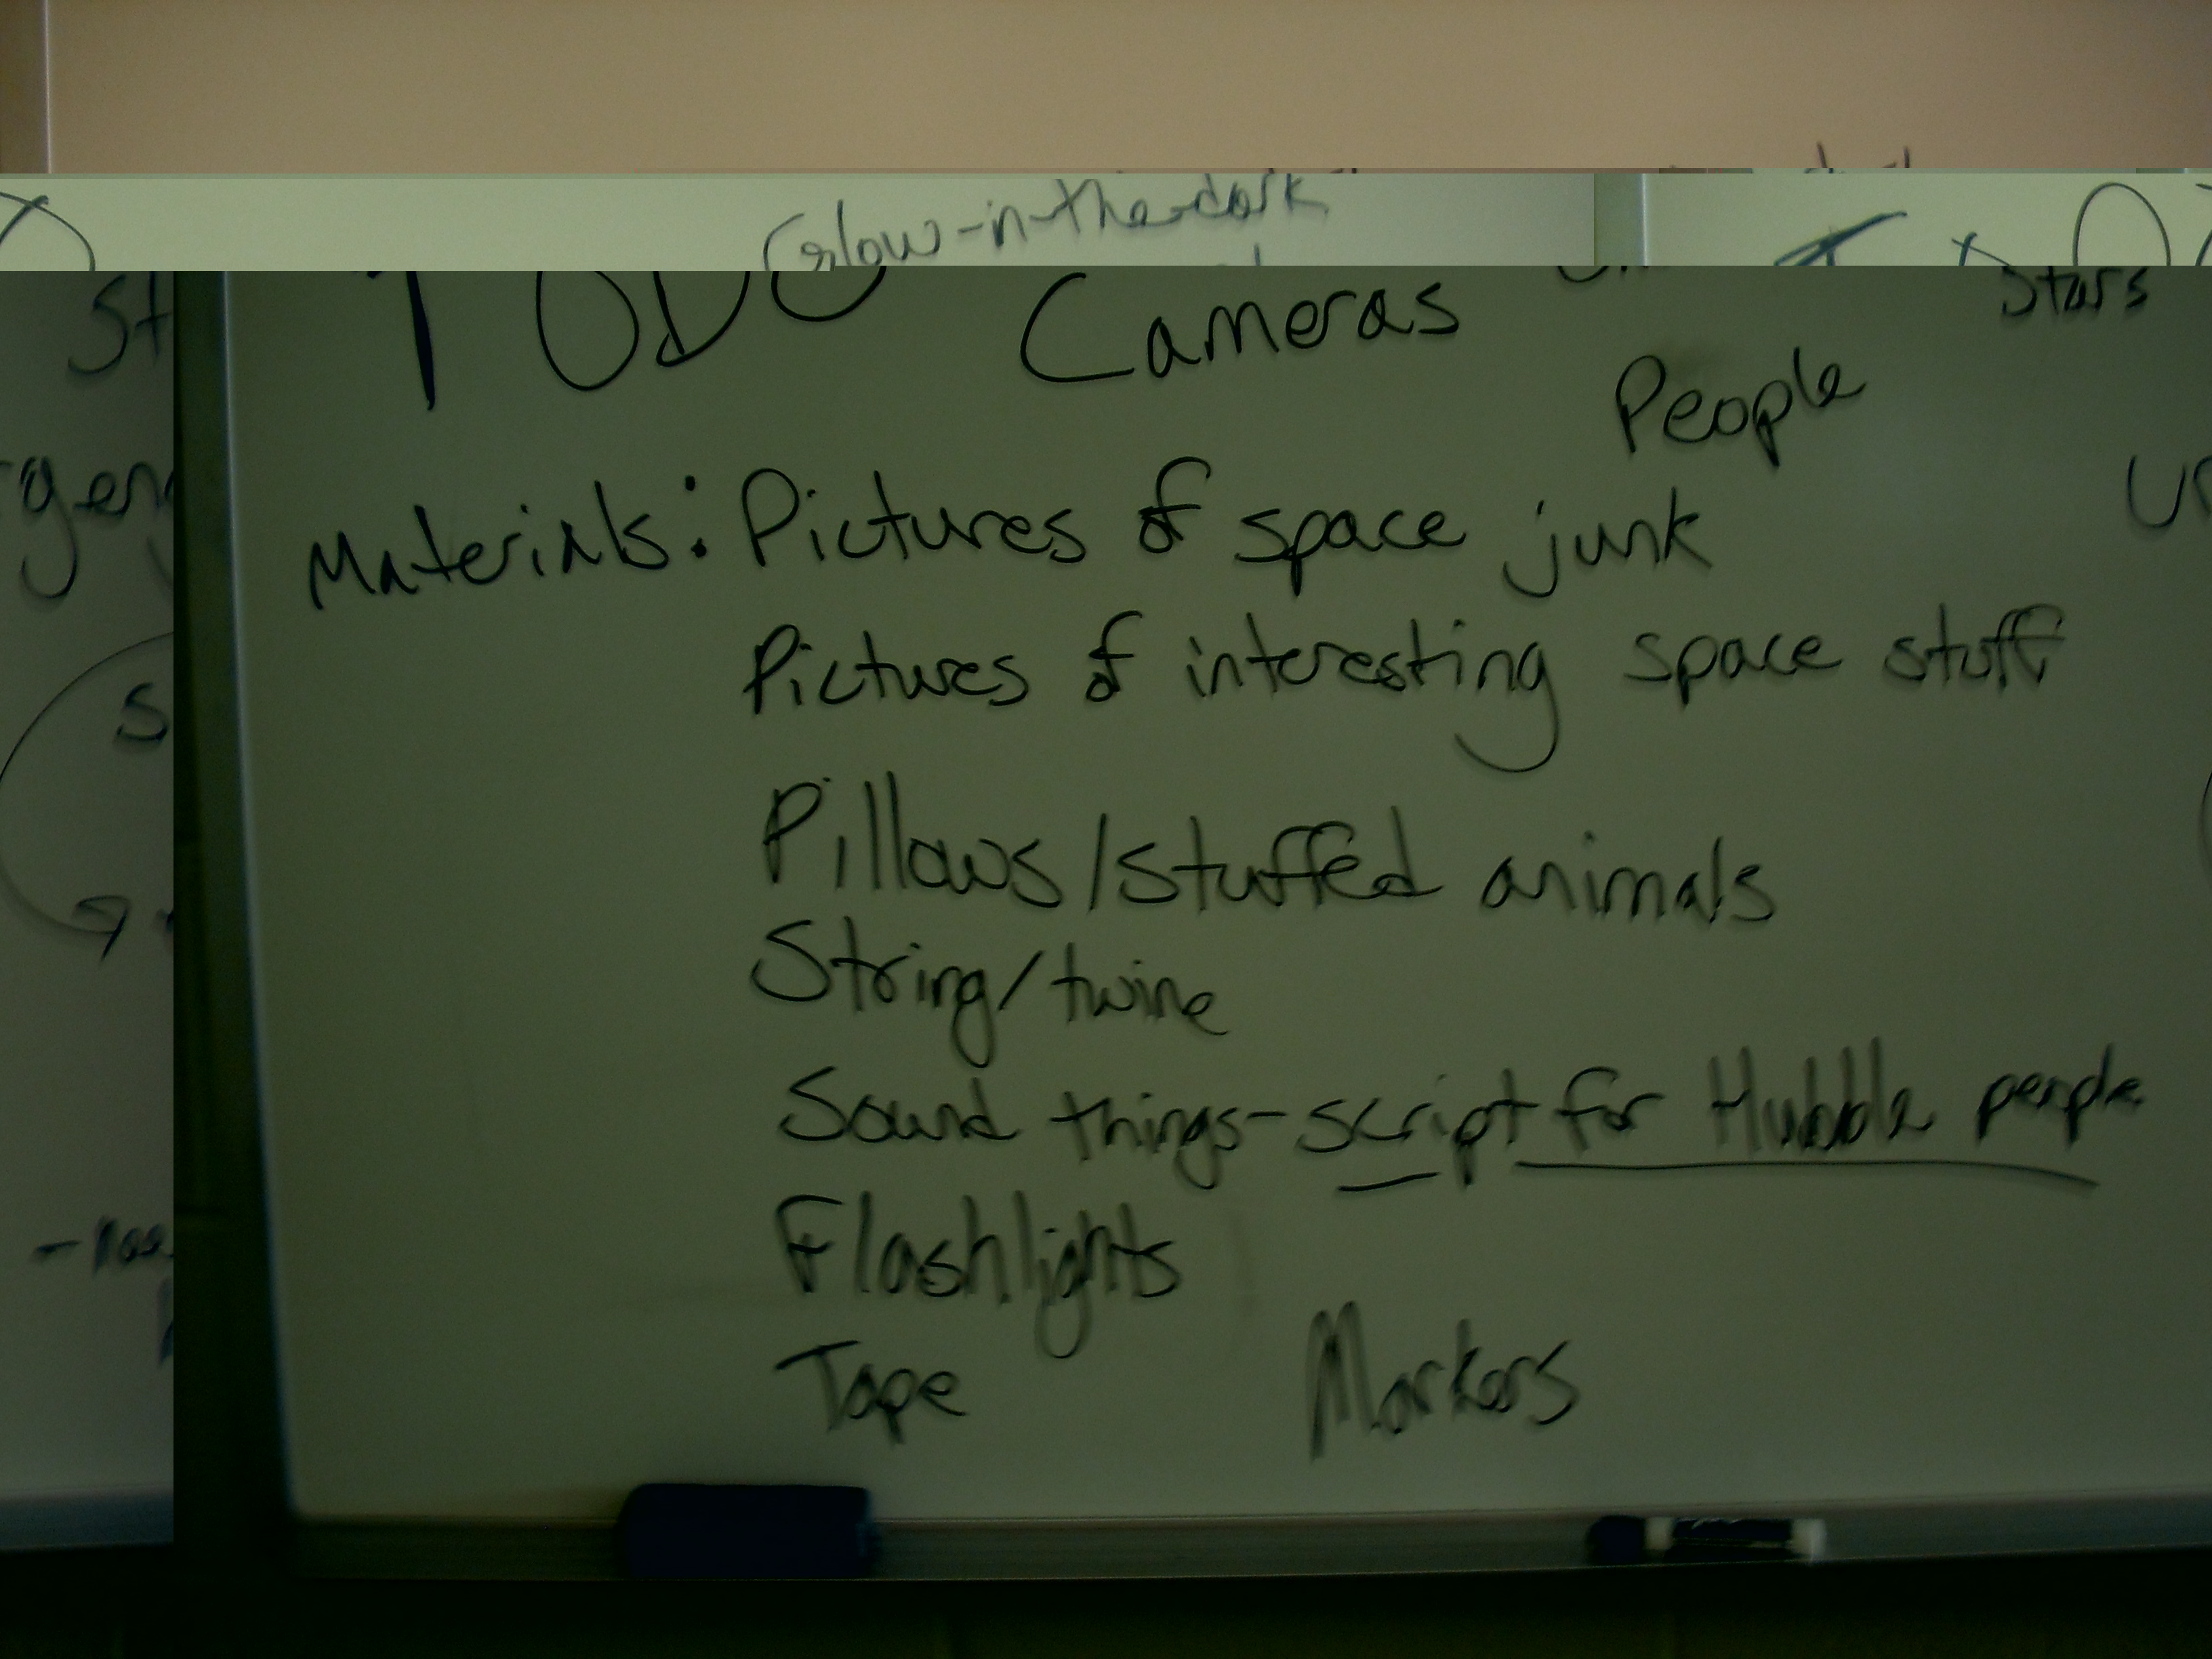 Glow-in-the-dark
TODO
Cameras
Stars
People
Materials: Pictures of space junk
Pictures of interesting space stuff
Pillows/stuffed animals
String/twine
Sound things-script for Hubble people
Flashlights
Tape Markers